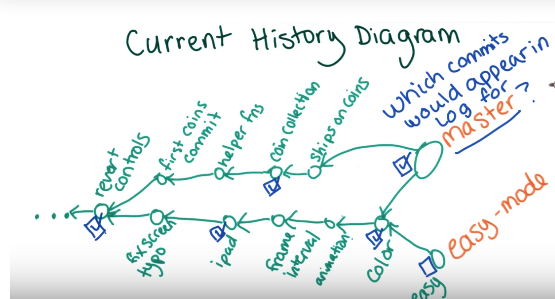 Current History Diagram
which commits
would appear in
log for
master?
revert
controls
first coins
commit
helper fns
coin collection
ships on coins
fix screen
typo
ipad
frame
interval
animation
color
easy
easy-mode